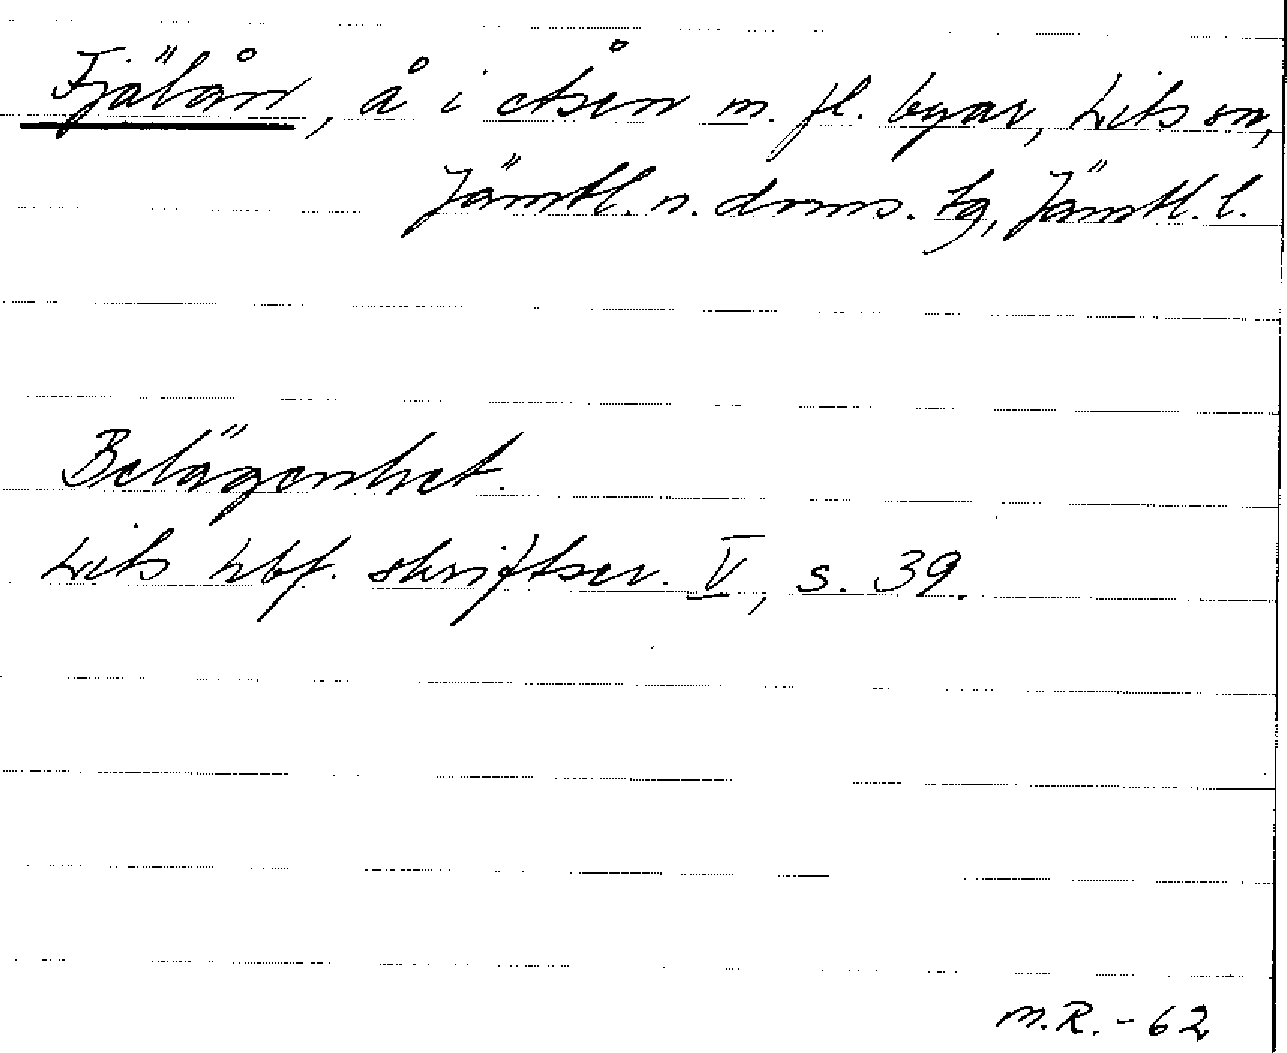 Fjälån, å i Åsen m. fl. byar, Lits sn,
Jämtl. n. doms. tg, Jämtl. l.
Belägenhet.
Lits hbf. skriftser. V, s. 39.
M.R. - 62